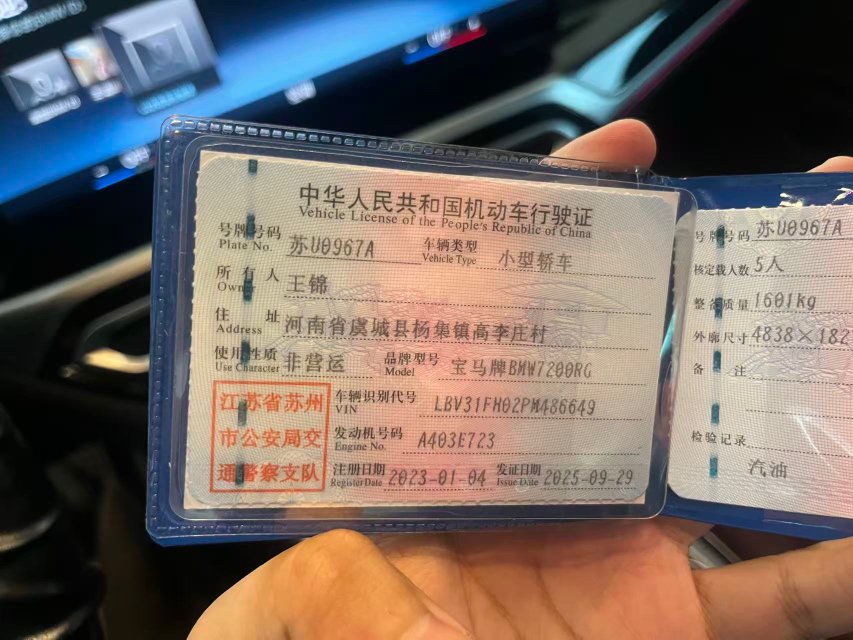 中华人民共和国机动车行驶证
Vehicle License of the People's Republic of China
号牌号码 苏U0967A 车辆类型 小型轿车
Plate No. Vehicle Type
所有人 王锦
Owner
住址 河南省虞城县杨集镇高李庄村
Address
使用性质 非营运 品牌型号 宝马牌BMW7200RG
Use Character Model
江苏省苏州
市公安局交
通警察支队
车辆识别代号 LBV31FH02PM486649
VIN
发动机号码 A403E723
Engine No.
注册日期 2023-01-04 发证日期 2025-09-29
Register Date Issue Date
号牌号码 苏U0967A
核定载人数 5人
整备质量 1601kg
外廓尺寸 4838×182
备注
检验记录
汽油